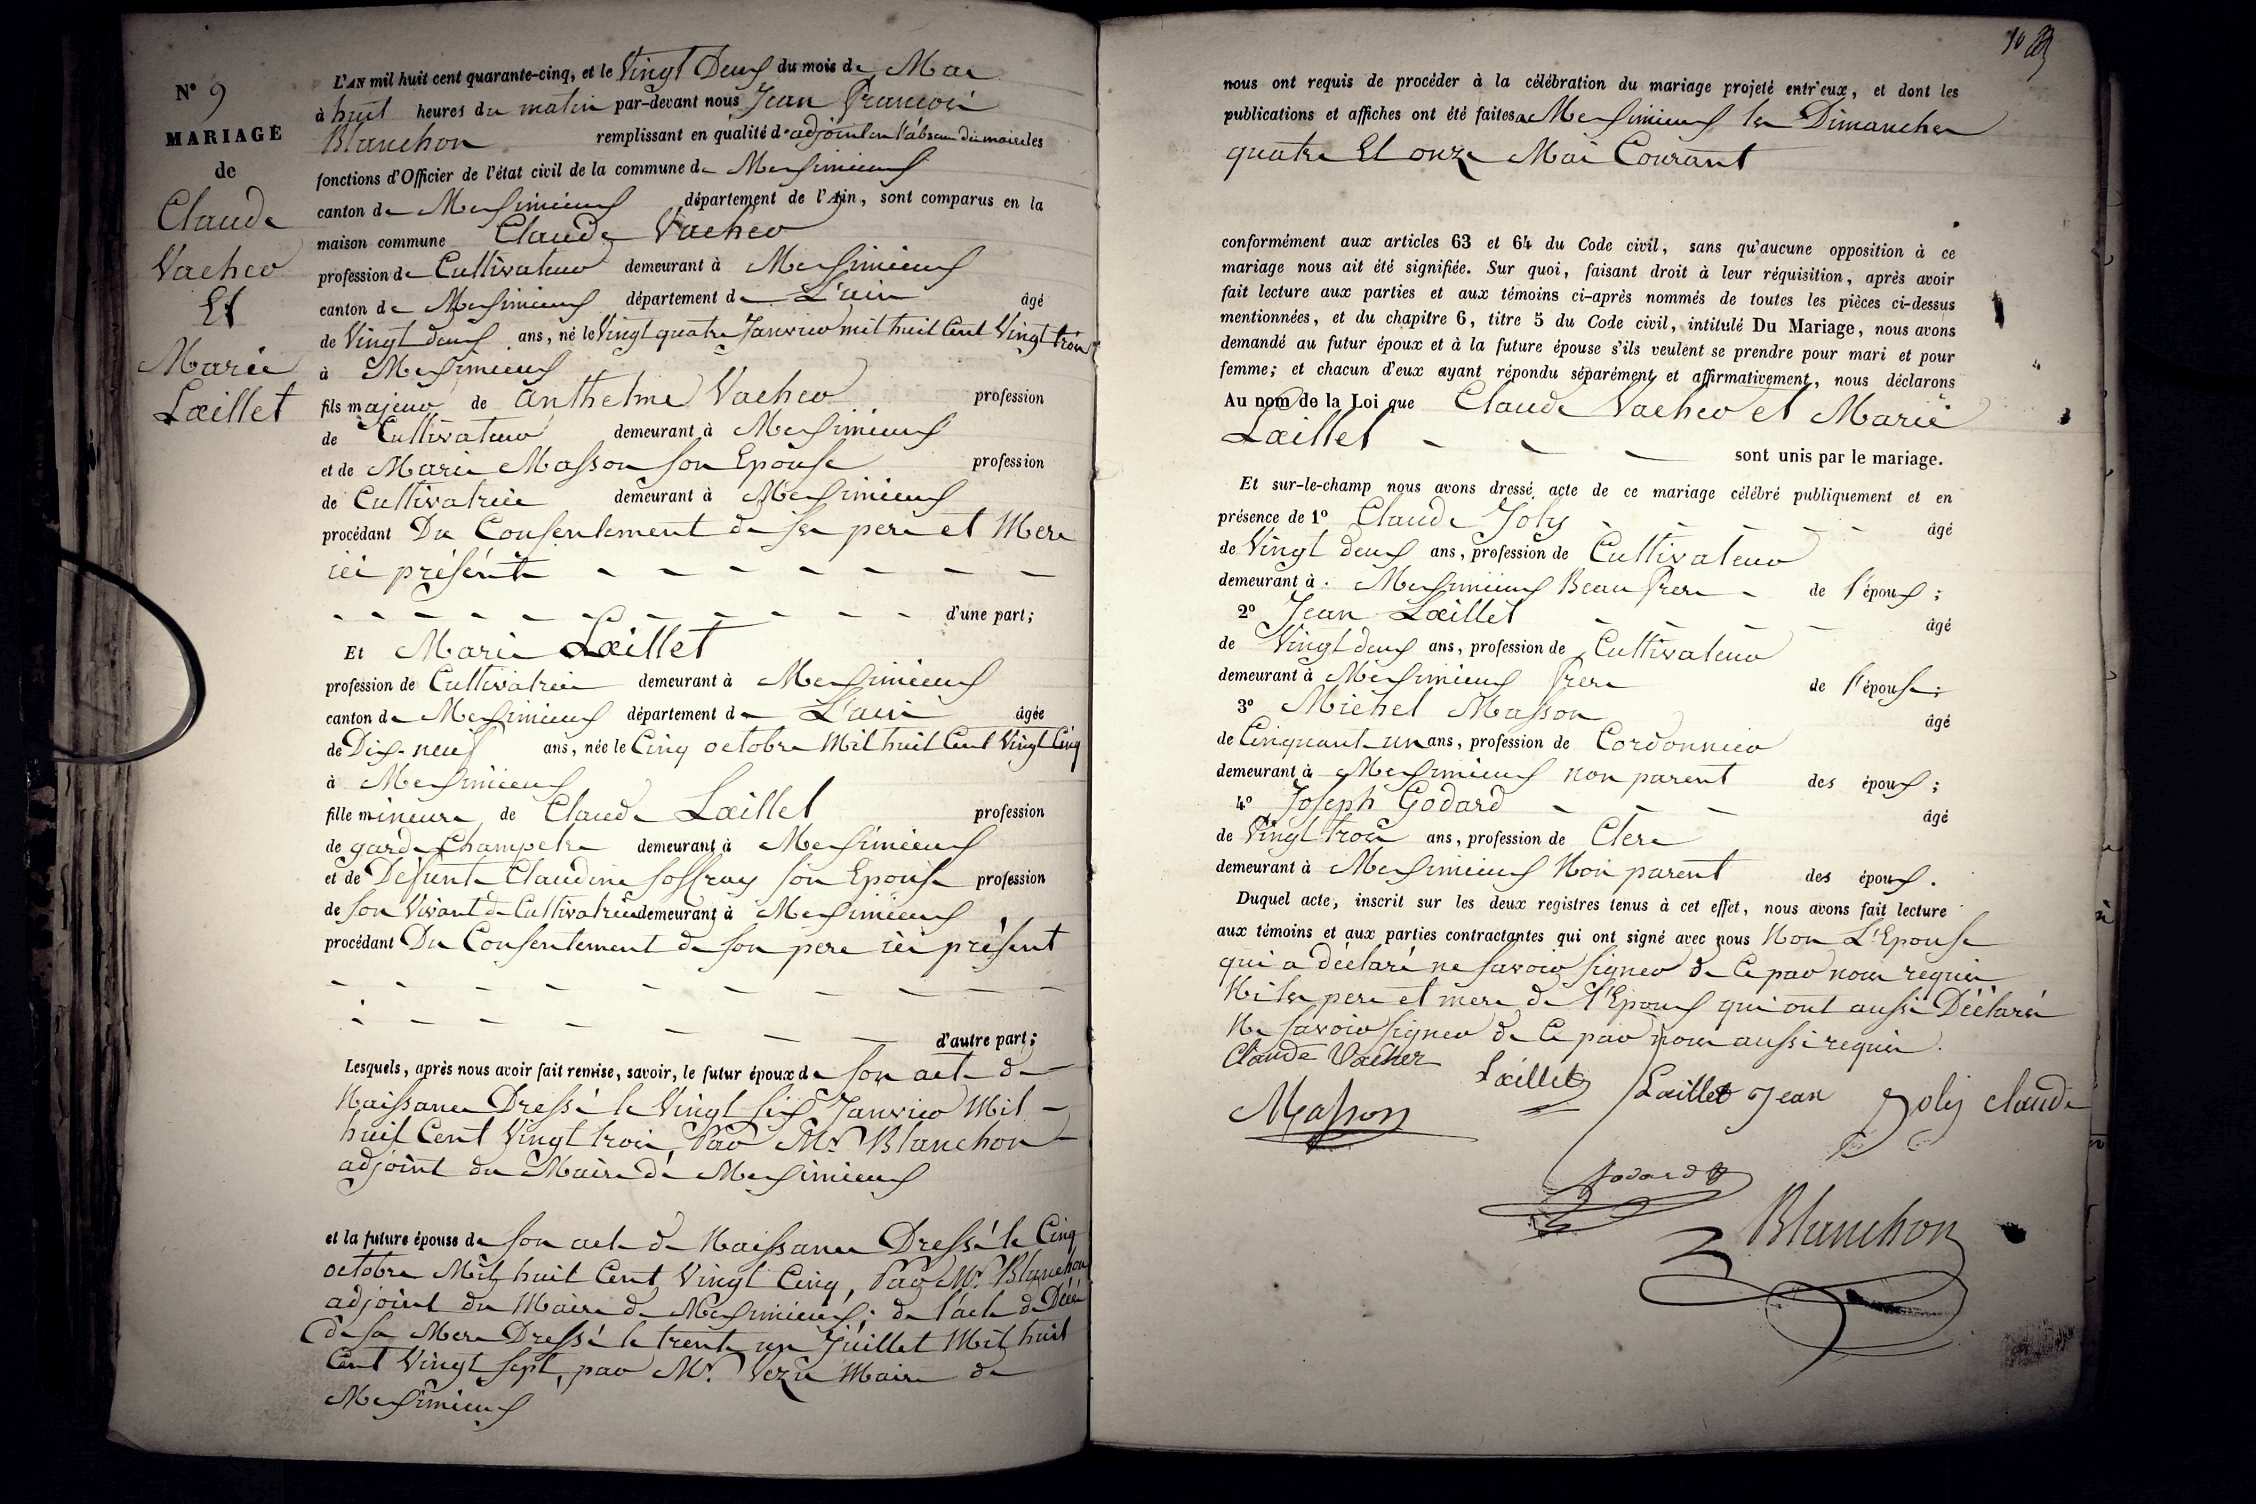 N° 9
MARIAGE
de
Claude
Vacher
Et
Marie
Lœillet
L'AN mil huit cent quarante-cinq, et le Vingt Deux du mois de Mai
à huit heures du matin par-devant nous Jean François
Blanchon remplissant en qualité d'adjoint en l'absence du maire les
fonctions d'Officier de l'état civil de la commune de Meximieux
canton de Meximieux département de l'Ain, sont comparus en la
maison commune Claude Vacher
profession de Cultivateur demeurant à Meximieux
canton de Meximieux département de L'ain âgé
de Vingt deux ans, né le Vingt quatre Janvier mil huit Cent Vingt trois
à Meximieux
fils majeur de anthelme Vacher profession
de Cultivateur demeurant à Meximieux
et de Marie Masson son Epouse profession
de Cultivatrice demeurant à Meximieux
procédant Du Consentement de ses pere et Mere
ici présents
d'une part;
Et Marie Lœillet
profession de Cultivatrice demeurant à Meximieux
canton de Meximieux département de L'ain âgée
de Dix-neuf ans, née le Cinq octobre Mil huit Cent Vingt Cinq
à Meximieux
fille mineure de Claude Lœillet profession
de garde Champetre demeurant à Meximieux
et de Défunte Claudine Soffray son Epouse profession
de son Vivant de Cultivatrice demeurant à Meximieux
procédant Du Consentement de son pere ici présent
d'autre part;
Lesquels, après nous avoir fait remise, savoir, le futur époux de son acte de
Naissance Dressé le Vingt six Janvier Mil
huit Cent Vingt trois, Par Mr Blanchon
adjoint du Maire de Meximieux
et la future épouse de son acte de Naissance Dressé le Cinq
octobre Mil huit Cent Vingt Cinq, Par Mr Blanchon
adjoint du Maire de Meximieux; de l'acte de Décè
de sa Mere Dressé le trente un Juillet Mil huit
Cent Vingt sept, par Mr. Vezu Maire de
Meximieux
10
nous ont requis de procéder à la célébration du mariage projeté entr'eux, et dont les
publications et affiches ont été faites a Meximieux les Dimanches
quatre Et onze Mai Courant
conformément aux articles 63 et 64 du Code civil, sans qu'aucune opposition à ce
mariage nous ait été signifiée. Sur quoi, faisant droit à leur réquisition, après avoir
fait lecture aux parties et aux témoins ci-après nommés de toutes les pièces ci-dessus
mentionnées, et du chapitre 6, titre 5 du Code civil, intitulé Du Mariage, nous avons
demandé au futur époux et à la future épouse s'ils veulent se prendre pour mari et pour
femme; et chacun d'eux ayant répondu séparément et affirmativement, nous déclarons
Au nom de la Loi que Claude Vacher et Marie
Lœillet sont unis par le mariage.
Et sur-le-champ nous avons dressé acte de ce mariage célébré publiquement et en
présence de 1° Claude Joly âgé
de Vingt deux ans, profession de Cultivateur
demeurant à Meximieux Beau frere de l'époux;
2° Jean Lœillet âgé
de Vingt deux ans, profession de Cultivateur
demeurant à Meximieux frere de l'épouse;
3° Michel Masson âgé
de Cinquante un ans, profession de Cordonnier
demeurant à Meximieux non parent des époux;
4° Joseph Godard âgé
de Vingt trois ans, profession de Clerc
demeurant à Meximieux Non parent des époux.
Duquel acte, inscrit sur les deux registres tenus à cet effet, nous avons fait lecture
aux témoins et aux parties contractantes qui ont signé avec nous Non L'Epouse
qui a déclaré ne savoir signer de Ce par nous requise
Ni les pere et mere de l'Epoux qui ont aussi Déclaré
Ne savoir signer de Ce par nous aussi requis.
Claude Vacher Lœillet Lœillet Jean Joly claude
Masson
Godard
Blanchon